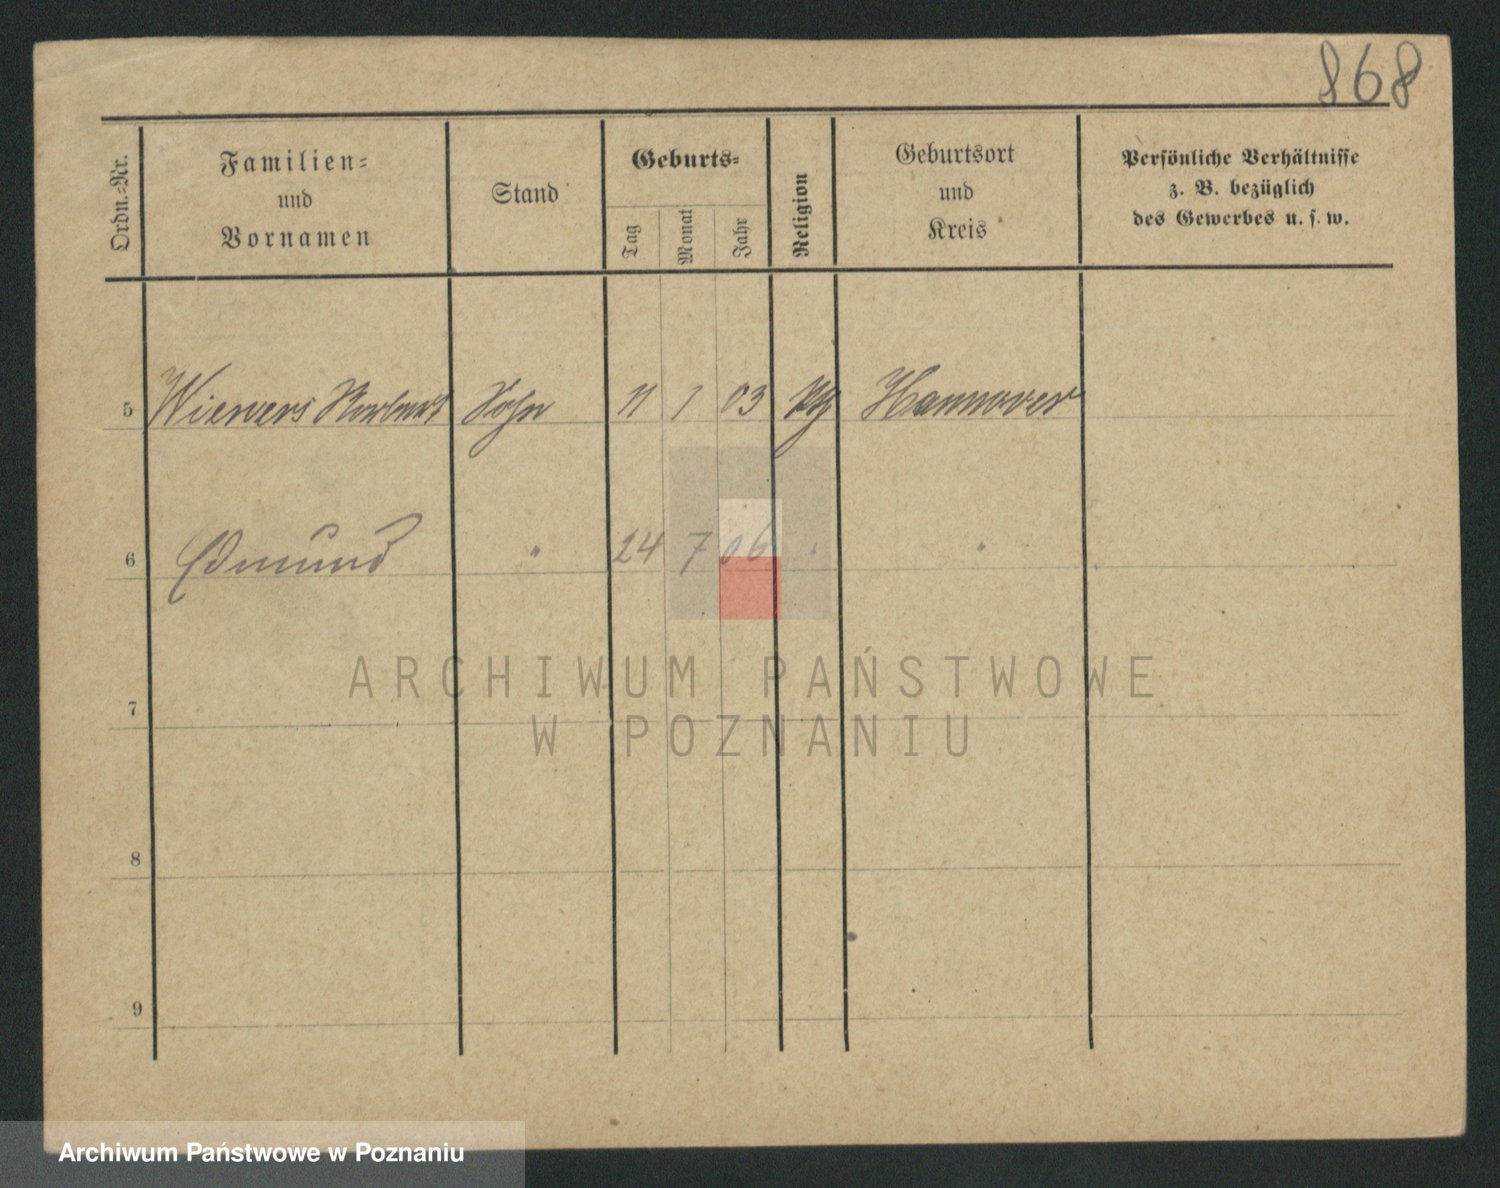 868
Ordn.-Nr.
Familien-
und
Vornamen
Stand
Geburts-
Tag
Monat
Jahr
Religion
Geburtsort
und
Kreis
Persönliche Verhältnisse
z. B. bezüglich
des Gewerbes u. s. w.
5 Wiewers Norbert Sohn 11 1 03 Hannover
6 Edmund " 24 7 06 " "
ARCHIWUM PAŃSTWOWE
W POZNANIU
7
8
9
Archiwum Państwowe w Poznaniu